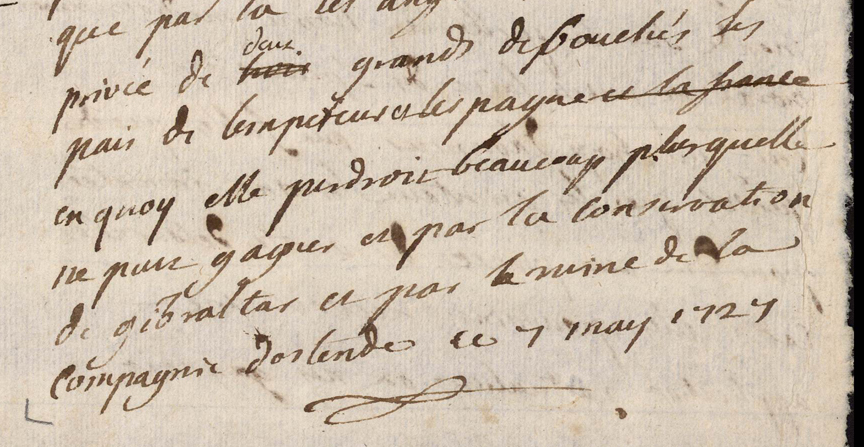 que par la les ang
privé de ~~trois~~ deux grands debouchés les
pais de lempereur et lespagne ~~et la france~~
en quoy elle perdroit beaucoup plus quelle
ne peut gagner et par la conservation
de gibraltar et par la ruine de la
compagnie dostende ce 7 may 1727